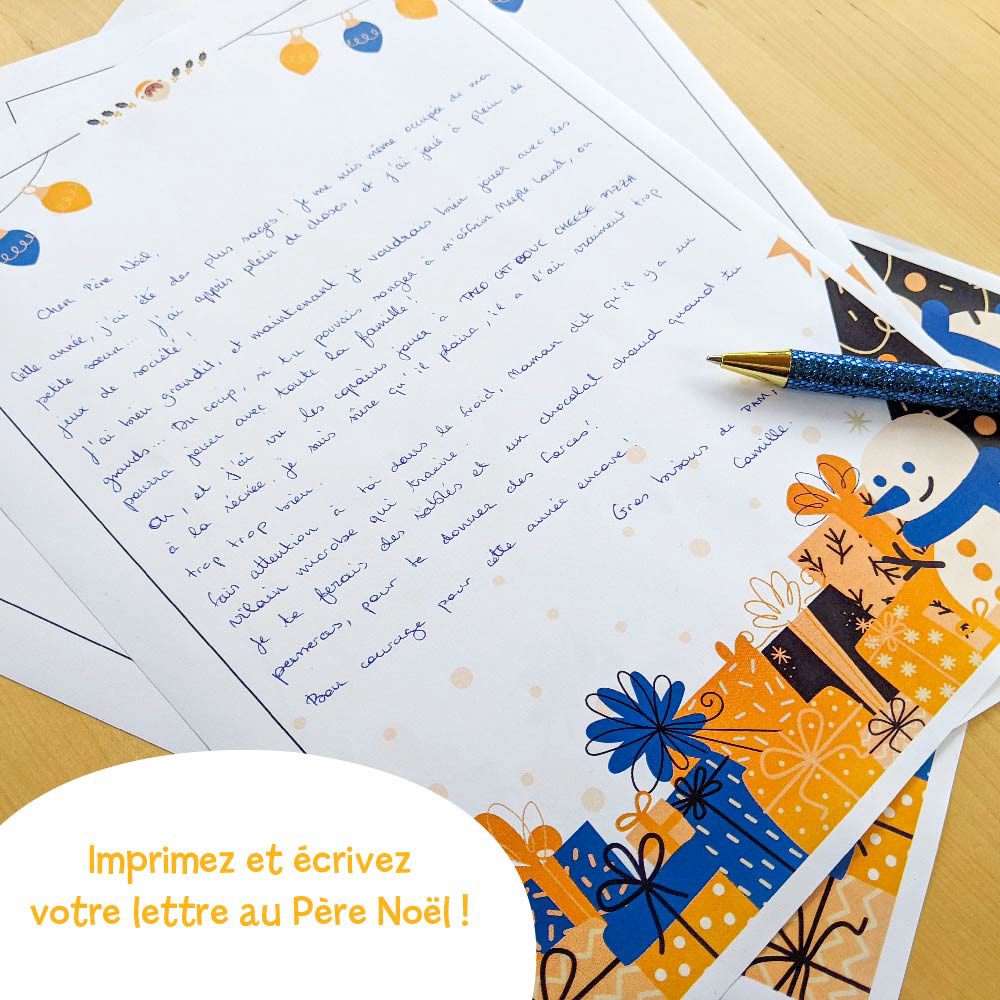 Cher Père Noël,
Cette année, j'ai été des plus sages! Je me suis même occupée de ma
petite sœur... J'ai appris plein de choses, et j'ai joué à plein de
jeux de société!
J'ai bien grandit, et maintenant je voudrais bien jouer avec les
grands... Du coup, si tu pouvais songer à m'offrir Meeple Land, on
pourra jouer avec toute la famille!
Oh, et j'ai vu les copains jouer à TACO CAT BOUC CHEESE PIZZA
à la récrée, je suis sûre qu'il plaira, il a l'air vraiment trop
trop trop bien.
Fais attention à toi dans le froid, Maman dit qu'il y a un
vilain microbe qui traine!
Je te ferais des sablés et un chocolat chaud quand tu
passeras, pour te donner des forces!
Bon courage pour cette année encore!
Gros bisous de PAM,
Camille.
Imprimez et écrivez
votre lettre au Père Noël !